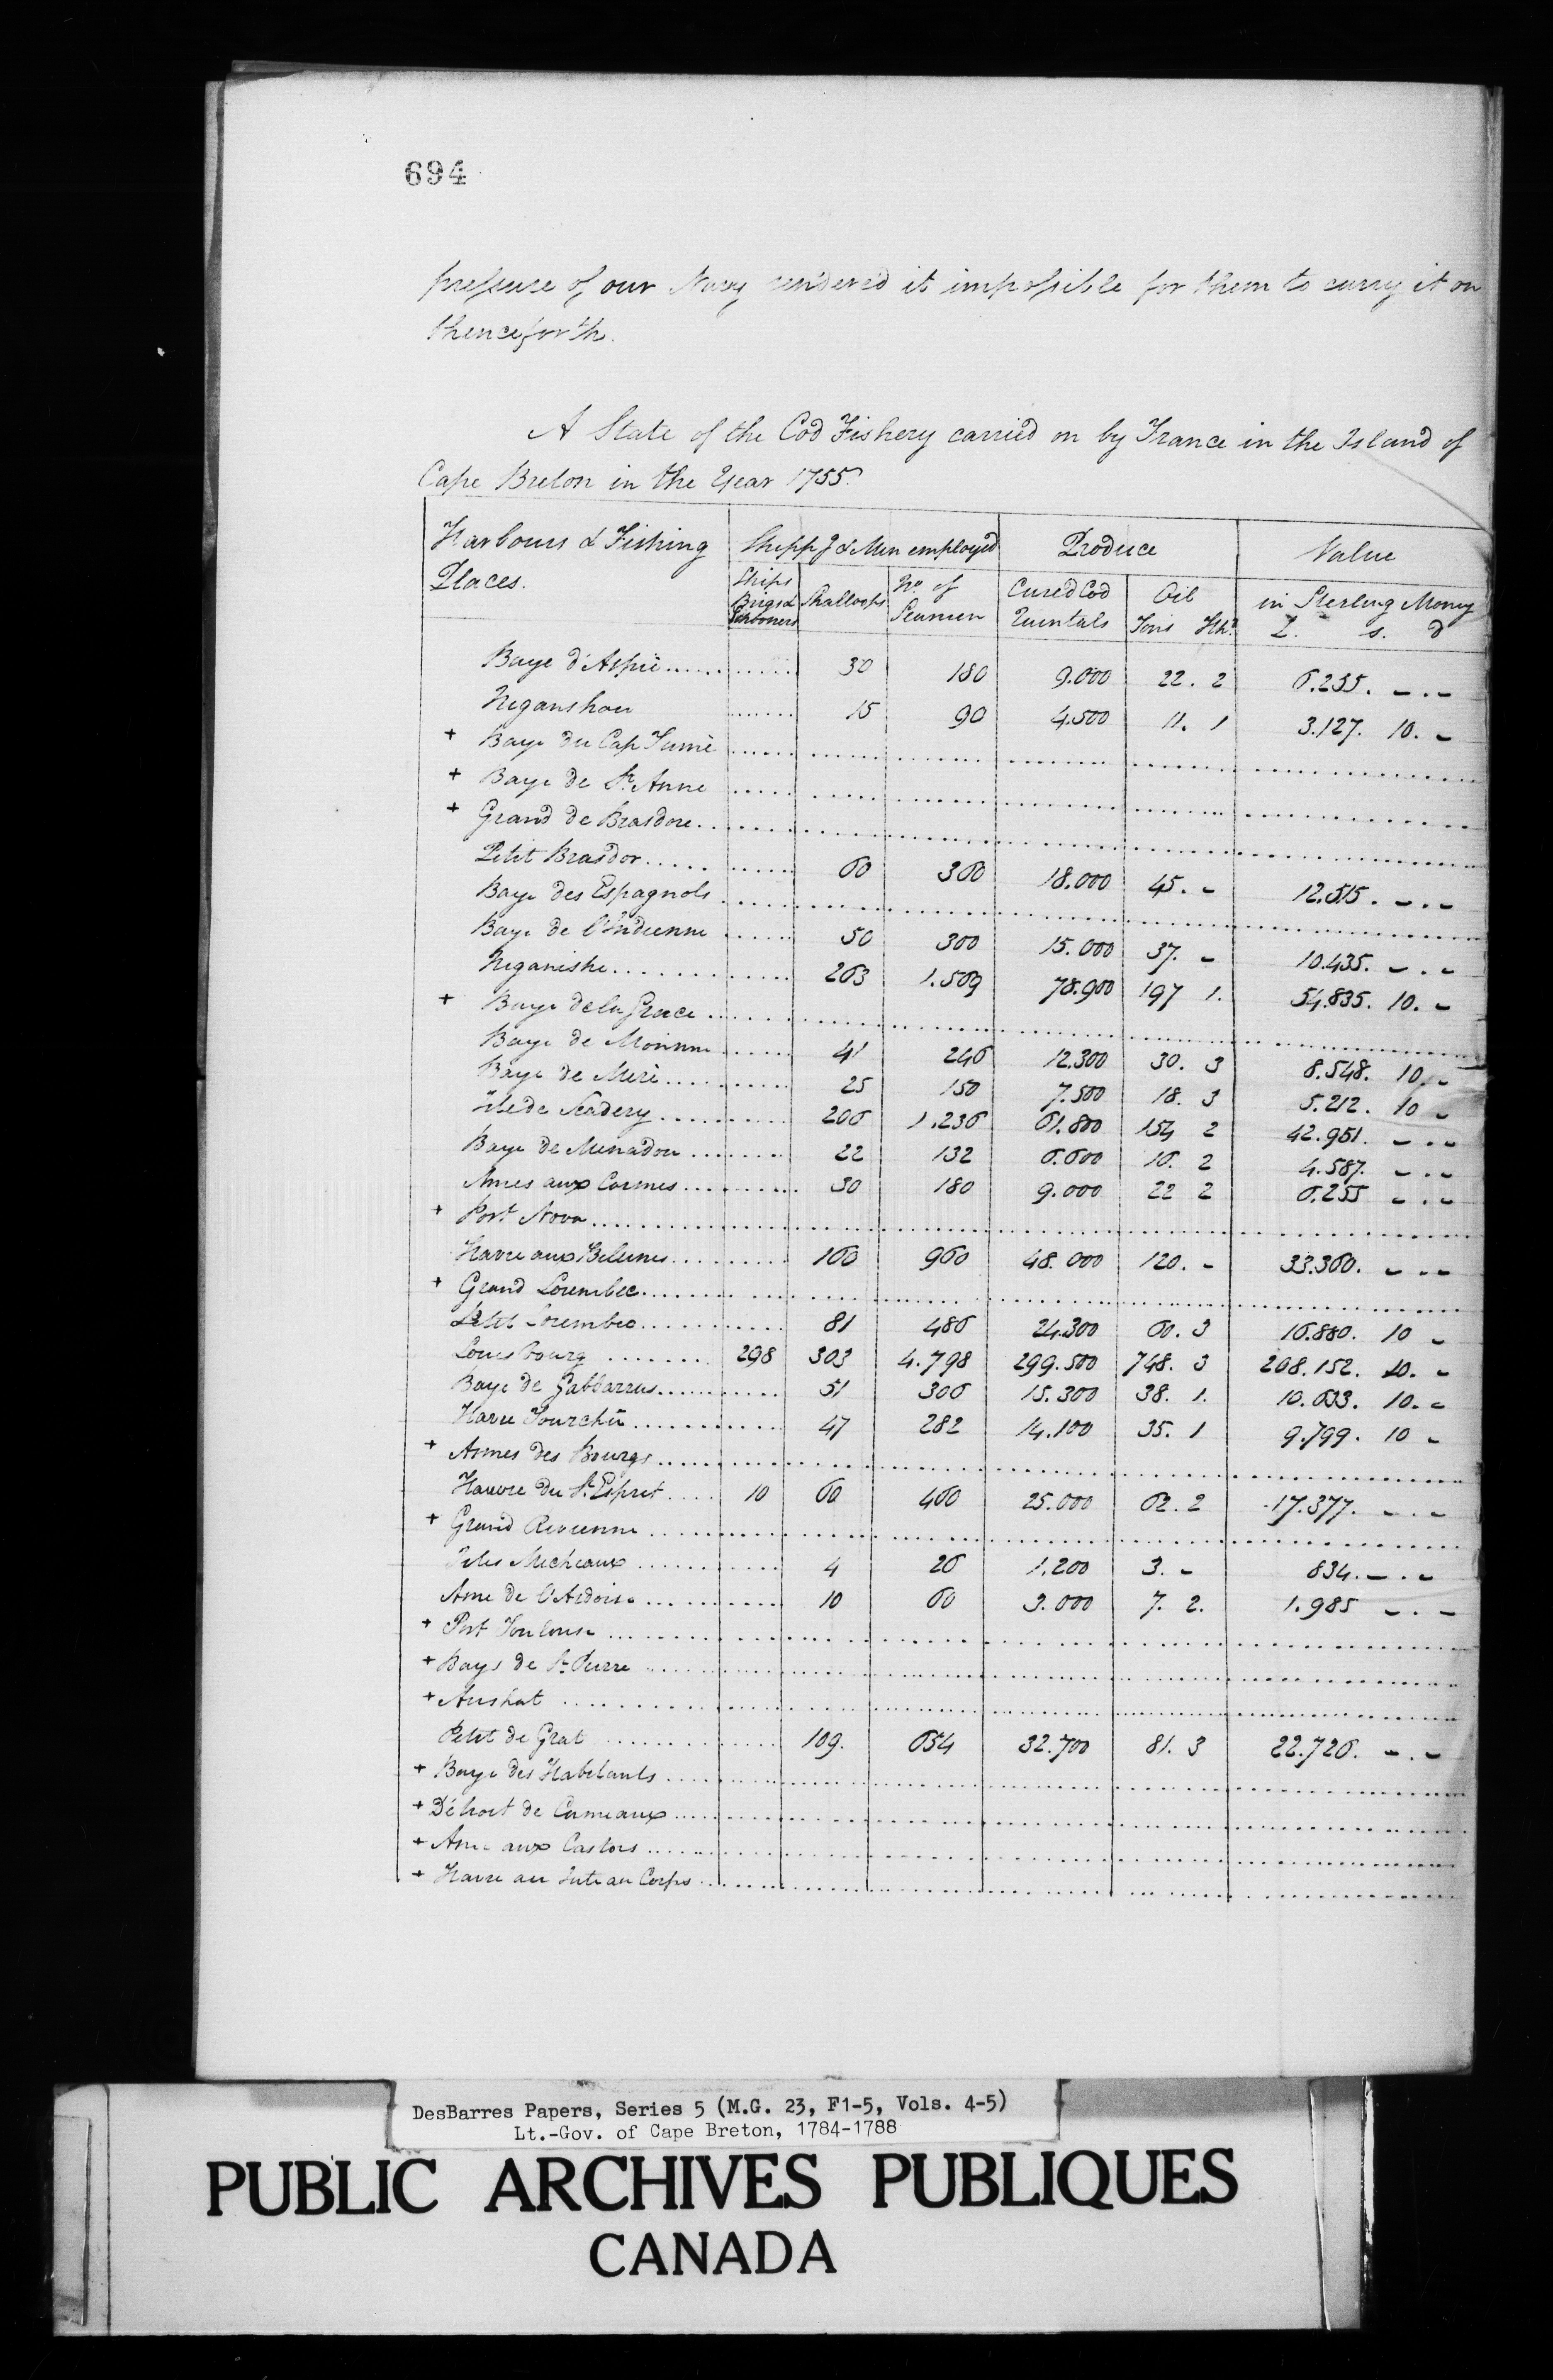 694
pressure of our Navy render'd it impossible for them to carry it on
thenceforth.
A State of the Cod Fishery carried on by France in the Island of
Cape Breton in the Year 1755.
Harbours & Fishing Places. Shippg & Men employed Produce Value
Ships Brigs & Schooners Shalloops No. of Seamen Cured Cod Quintals Oil Tons Hhds in Sterling Money £. s. d
Baye d'Aspé 30 180 9.000 22. 2 6.255. -.-
Niganshou 15 90 4.500 11. 1 3.127. 10. -
+ Baye du Cap Fumé
+ Baye de St. Anne
+ Grand de Brasdore
Petit Brasdor 60 360 18.000 45. - 12.515. -.-
Baye des Espagnols
Baye de l'Indienne 50 300 15.000 37. - 10.435. -.-
Niganishe 263 1.569 78.900 197 1. 54.835. 10. -
+ Baye de la Grace
Baye de Morinne 41 246 12.300 30. 3 8.548. 10. -
Baye de Miré 25 150 7.500 18. 3 5.212. 10 -
Isle de Scadery 206 1.236 61.800 154 2 42.951. -.-
Baye de Menadou 22 132 6.600 16. 2 4.587. -.-
Ances aux Cormes 30 180 9.000 22 2 6.255 -.-
+ Port Nova
Havre aux Belunes 160 960 48.000 120. - 33.360. -.-
+ Grand Lorembec
Petit Lorembec 81 486 24.300 60. 3 16.880. 10 -
Louisbourg 298 303 4.798 299.500 748. 3 208.152. 10. -
Baye de Gabbarrus 51 306 15.300 38. 1. 10.633. 10. -
Havre Fourchü 47 282 14.100 35. 1 9.799. 10 -
+ Asmes des Bourgs
Hauvre du St. Esprit 10 60 460 25.000 62. 2 17.377. -.-
+ Grand Revienne
Isles Micheaux 4 26 1.200 3. - 834. -.-
Ame de l'Ardoise 10 60 3.000 7. 2. 1.985 -.-
+ Port Toulouse
+ Bays de St. Pierre
+ Arishat
Petit de Grat 109. 654 32.700 81. 3 22.726. -.-
+ Baye des Habitants
+ Détroit de Cameaux
+ Ame aux Castors
+ Havre au Corps
DesBarres Papers, Series 5 (M.G. 23, F1-5, Vols. 4-5)
Lt.-Gov. of Cape Breton, 1784-1788
PUBLIC ARCHIVES PUBLIQUES
CANADA